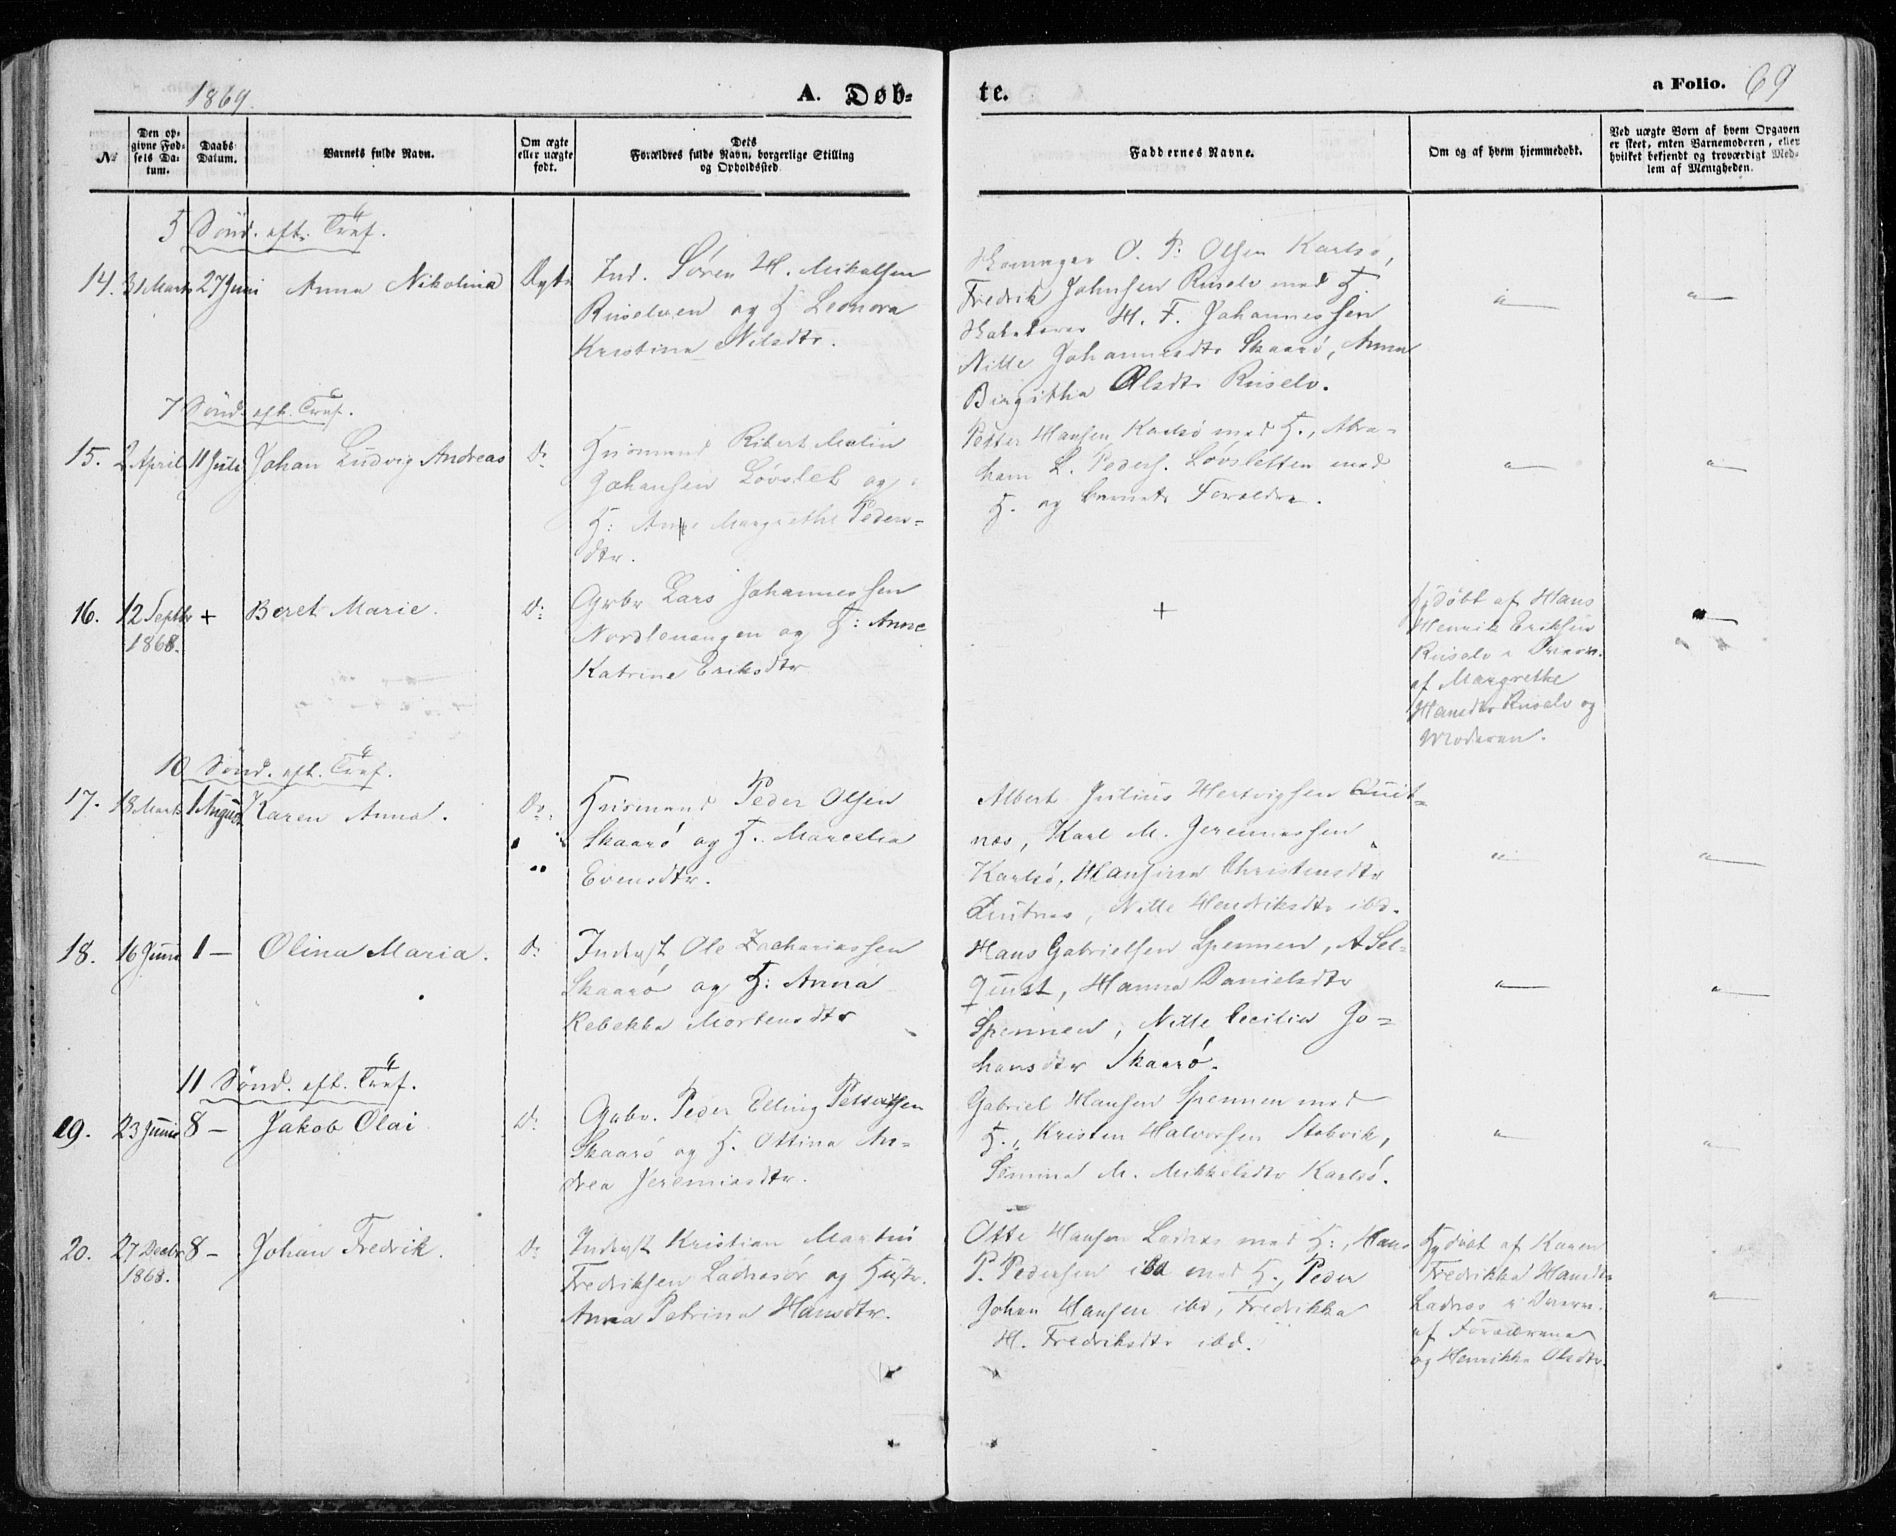 1869. A. Døb- te. a Folio. 69
№
Den op-
givne Fød-
sels Da-
tum.
Daabs
Datum.
Barnets fulde Navn.
Om ægte
eller uægte
født.
Dets
Forældres fulde Navn, borgerlige Stilling
og Opholdssted
Faddernes Navne.
Om og af hvem hjemmedøbt.
Ved uægte Børn af hvem Opgaven
er skeet, enten Barnemoderen, eller
hvilket bekjendt og troværdigt Med-
lem af Menigheden.
5 Sönd. eft. Tref.
14. 31 Marts 27 Juni Anna Nikolina Ægte
Ind. Sören H. Mikalsen
Riiselven og H Leonora
Kristina Nilsdtr.
O. P. Olsen Karlsö,
Fredrik Johnsen Riiselv med H.
H. F. Johannessen
Nille Johannesdtr Skaarö, Anna
Birgitha Olsdtr Riiselv.
7 Sönd. eft. Tref.
15. 2 April 11 Juli Johan Ludvig Andreas D:
Huusmand Ribert Malin
Johansen Lövslet og
H: Anne Margrethe Peders-
dtr.
Petter Hansen Karlsö med H., Abra-
ham L. Peders. Lövsletten med
H. og Barnets Forældre.
16. 12 Septbr + Beret Marie. D:
1868.
Gbr Lars Johannessen
Nordlenangen og H: Anne
Katrine Eriksdtr
+
Hjdöbt af Hans
Henrik Eriksen
Riiselv i Overv.
af Margrethe
Hansdtr Riiselv og
Moderen.
10 Sönd. eft. Tref.
17. 18 Marts 1 August Karen Anna. Do.
Huusmand Peder Olsen
Skaarö og H. Marcelia
Evensdtr.
Albert Julius Hertvigsen Quit-
næs, Karl M. Jeremiassen
Karlsö, Hansina Christensdtr
Quitnæs, Nille Hendriksdtr ibd.
18. 16 Juni 1 — Olina Maria. D:
Inderst Ole Zachariassen
Skaarö og H: Anna
Rebekka Mortensdtr
Hans Gabrielsen Spennen, A Sel-
quist, Hanna Danielsdtr
Spennen, Nille Cecilia Jo-
hansdtr Skaarö.
11 Sönd. eft. Tref.
19. 23 Juni 8 — Jakob Olai D:
Gbr. Peder Elling Pettersen
Skaarö og H. Ottina An-
drea Jeremiasdtr.
Gabriel Hansen Spennen med
H., Kristen Halvorsen Stobvik,
M. Mikkelsdtr Karlsö.
20. 27 Decbr 8 — Johan Fredrik. D:
1868.
Inderst Kristian Martin
Fredriksen Ladnæsör og Hustr.
Anna Petrina Hansdtr.
Otte Hansen Ladnæs med H:, Hans
P. Pedersen ibd med H., Peder
Johan Hansen ibd, Fredrikka
H. Fredriksdtr ibd.
Hjdöbt af Karen
Fredrikka Hansdtr
Ladnæs i Overv.
af Forældrene
og Henrikka Olsdtr.